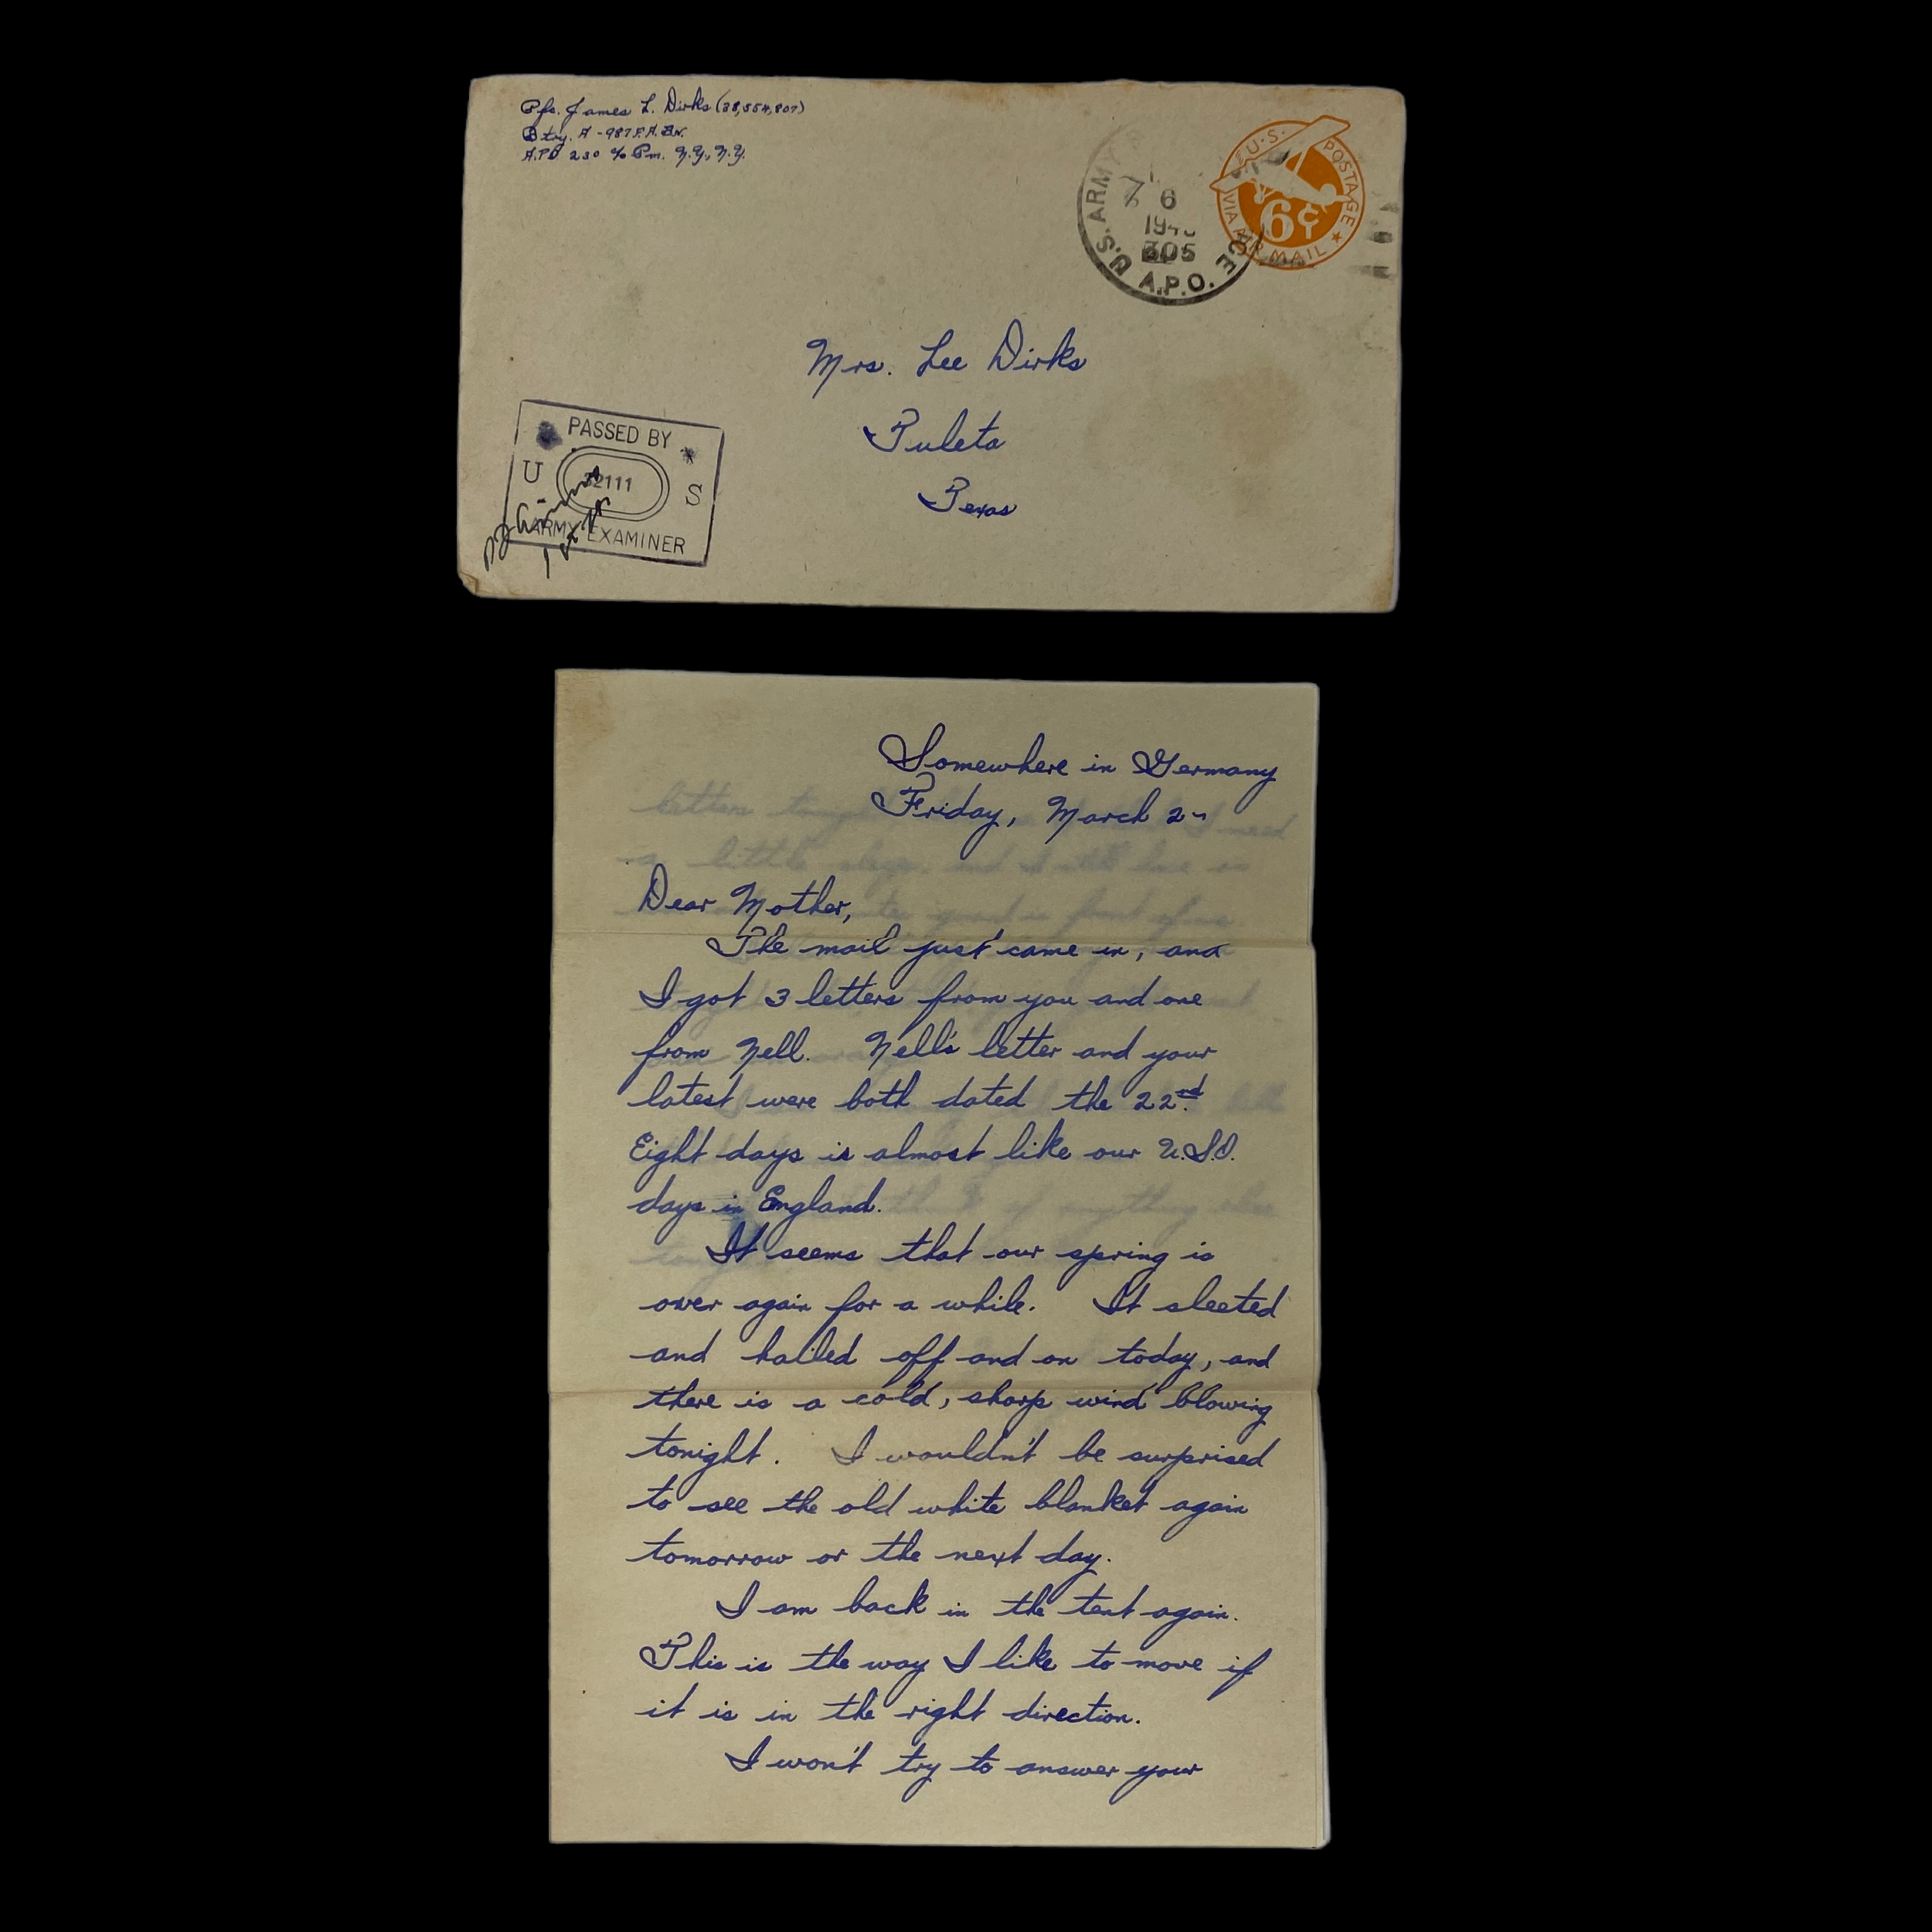 Pfc. James L. Dirks (38,554,807)
Btry. A - 987 F.A. Bn.
A.P.O 230 % Pm. N.Y., N.Y.
U.S. ARMY
A.P.O.
6
305
U.S. POSTAGE
6¢
VIA AIR MAIL
Mrs. Lee Dirks
Tuleta
Texas
PASSED BY
U 32111 S
ARMY EXAMINER
Somewhere in Germany
Friday, March 2
Dear Mother,
The mail just came in, and
I got 3 letters from you and one
from Nell. Nell's letter and your
latest were both dated the 22nd.
Eight days is almost like our U.S.O.
days in England.
It seems that our spring is
over again for a while. It sleeted
and hailed off and on today, and
there is a cold, sharp wind blowing
tonight. I wouldn't be surprised
to see the old white blanket again
tomorrow or the next day.
I am back in the tent again.
This is the way I like to move if
it is in the right direction.
I won't try to answer your